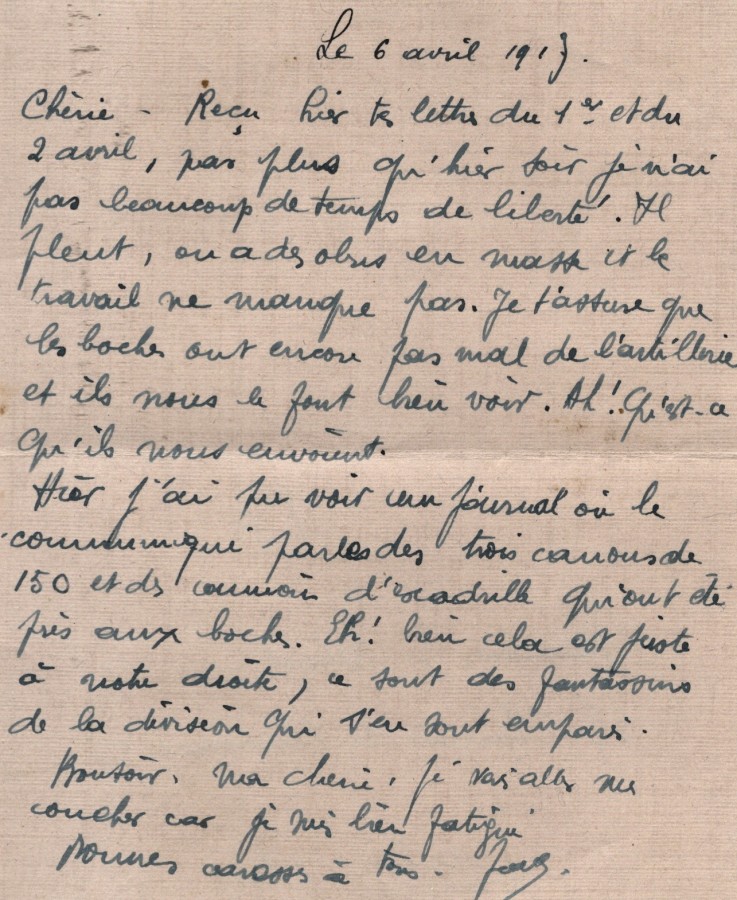 Le 6 avril 1917.
Chérie - Reçu hier tes lettres du 1er et du
2 avril, pas plus qu'hier soir je n'ai
pas beaucoup de temps de liberté. Il
pleut, on a des obus en masse et le
travail ne manque pas. Je t'assure que
les boches ont encore pas mal de l'artillerie
et ils nous le font bien voir. Ah! Qu'est-ce
qu'ils nous envoient.
Hier j'ai pu voir un journal où le
communiqué parles des trois canons de
150 et des d'escadrille qu'ont été
pris aux boches. Eh! bien cela est juste
à notre droite, ce sont des fantassins
de la division qui s'en sont emparé.
Bonsoir, ma chérie, je vais aller me
coucher car je suis bien fatigué
Bonnes caresses à tous.